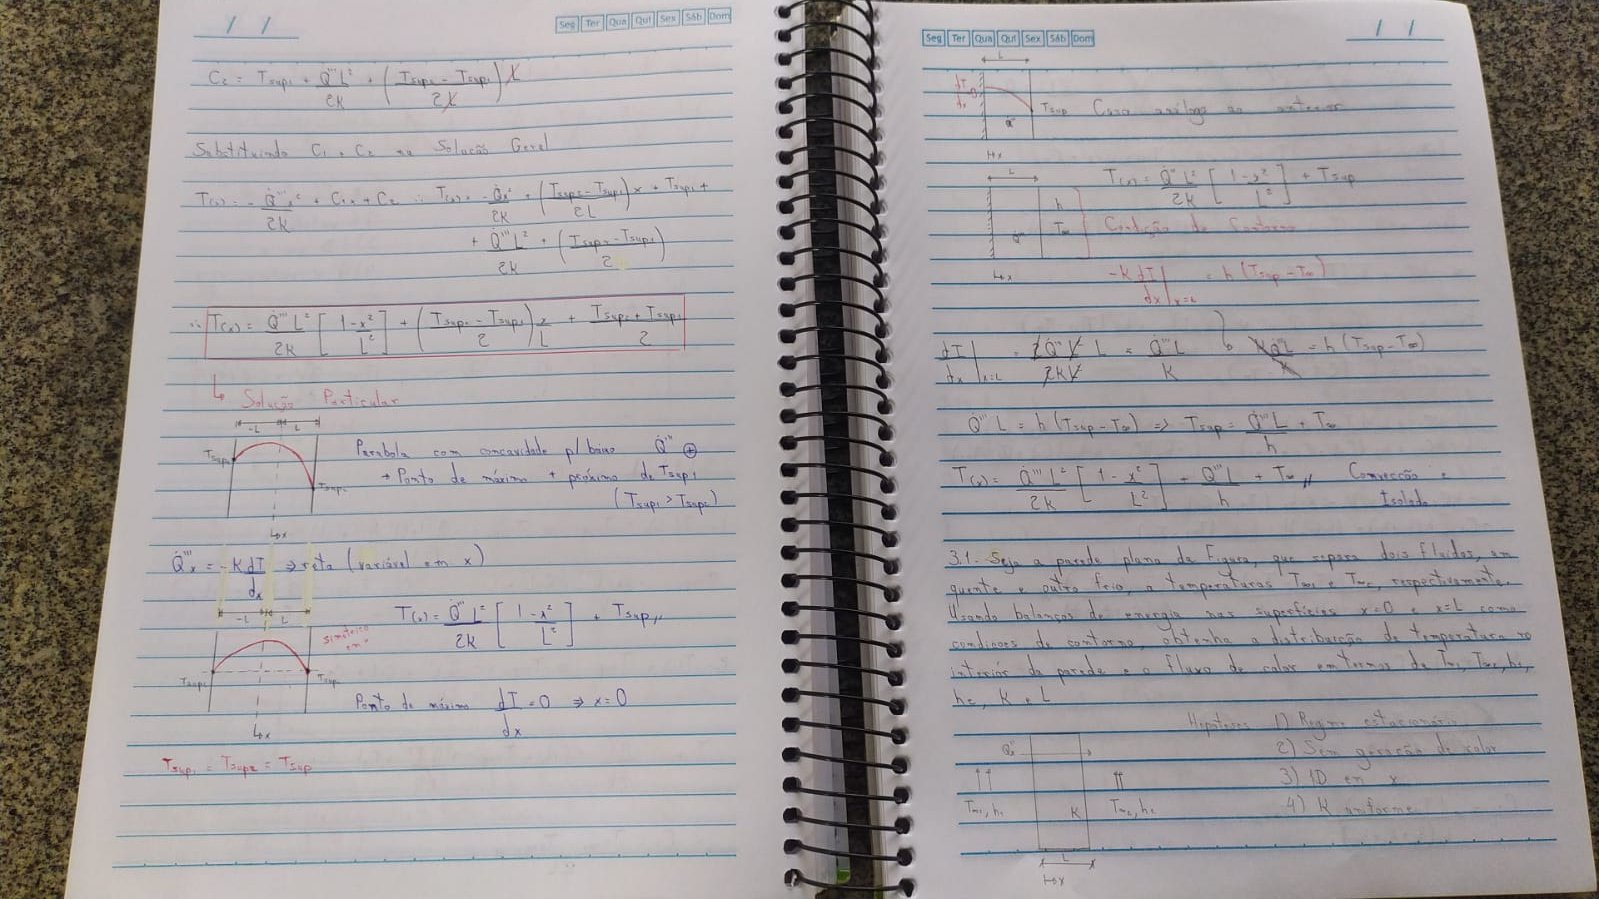 / /
Seg Ter Qua Qui Sex Sáb Dom
C₂ = Tsup₁ + Q̇'''L²/2K + (Tsup₂ - Tsup₁/2L) L
Substituindo C₁ e C₂ na Solução Geral
T(x) = - Q̇'''x²/2K + C₁x + C₂ ∴ T(x) = - Q̇x²/2K + (Tsup₂ - Tsup₁/2L) x + Tsup₁ +
+ Q̇'''L²/2K + (Tsup₂ - Tsup₁/2)
∴ T(x) = Q̇'''L²/2K [1 - x²/L²] + (Tsup₂ - Tsup₁/2) x/L + Tsup₂ + Tsup₁/2
↳ Solução Particular
-L L
Tsup₁ Parábola com concavidade p/ baixo Q̇''' ⊕
→ Ponto de máximo + próximo de Tsup₁
Tsup₂ (Tsup₁ > Tsup₂)
↳x
Q̇'''x = -K dT/dx ⇒ reta (variável em x)
-L L
T(x) = Q̇'''L²/2K [1 - x²/L²] + Tsup,,
simétrico em
Tsup₁ Tsup₂
Ponto de máximo dT/dx = 0 ⇒ x = 0
↳x
Tsup₁ = Tsup₂ = Tsup
Seg Ter Qua Qui Sex Sáb Dom
/ /
L
dT/dx = 0 Tsup Caso análogo ao anterior
Q̇'''
↳x
L
T(x) = Q̇'''L²/2K [1 - x²/L²] + Tsup
h
T∞ Condição de Contorno
Q̇'''
↳x
-K dT/dx |x=L = h (Tsup - T∞)
dT/dx |x=L = 2Q̇'''L/2K L = Q̇'''L/K ↳ KQ̇L/K = h (Tsup - T∞)
Q̇'''L = h (Tsup - T∞) ⇒ Tsup = Q̇'''L/h + T∞
T(x) = Q̇'''L²/2K [1 - x²/L²] + Q̇'''L/h + T∞,, Convecção e
Isolada
3.1- Seja a parede plana da Figura, que separa dois fluidos, um
quente e outro frio, a temperaturas T∞₁ e T∞₂, respectivamente.
Usando balanços de energia nas superfícies x=0 e x=L como
condições de contorno, obtenha a distribuição de temperatura no
interior da parede e o fluxo de calor em termos de T∞₁, T∞₂, h₁,
h₂, K e L
Hipóteses 1) Regime estacionário
2) Sem geração de calor
3) 1D em x
4) K uniforme
T∞₁, h₁ K T∞₂, h₂
L
↳x